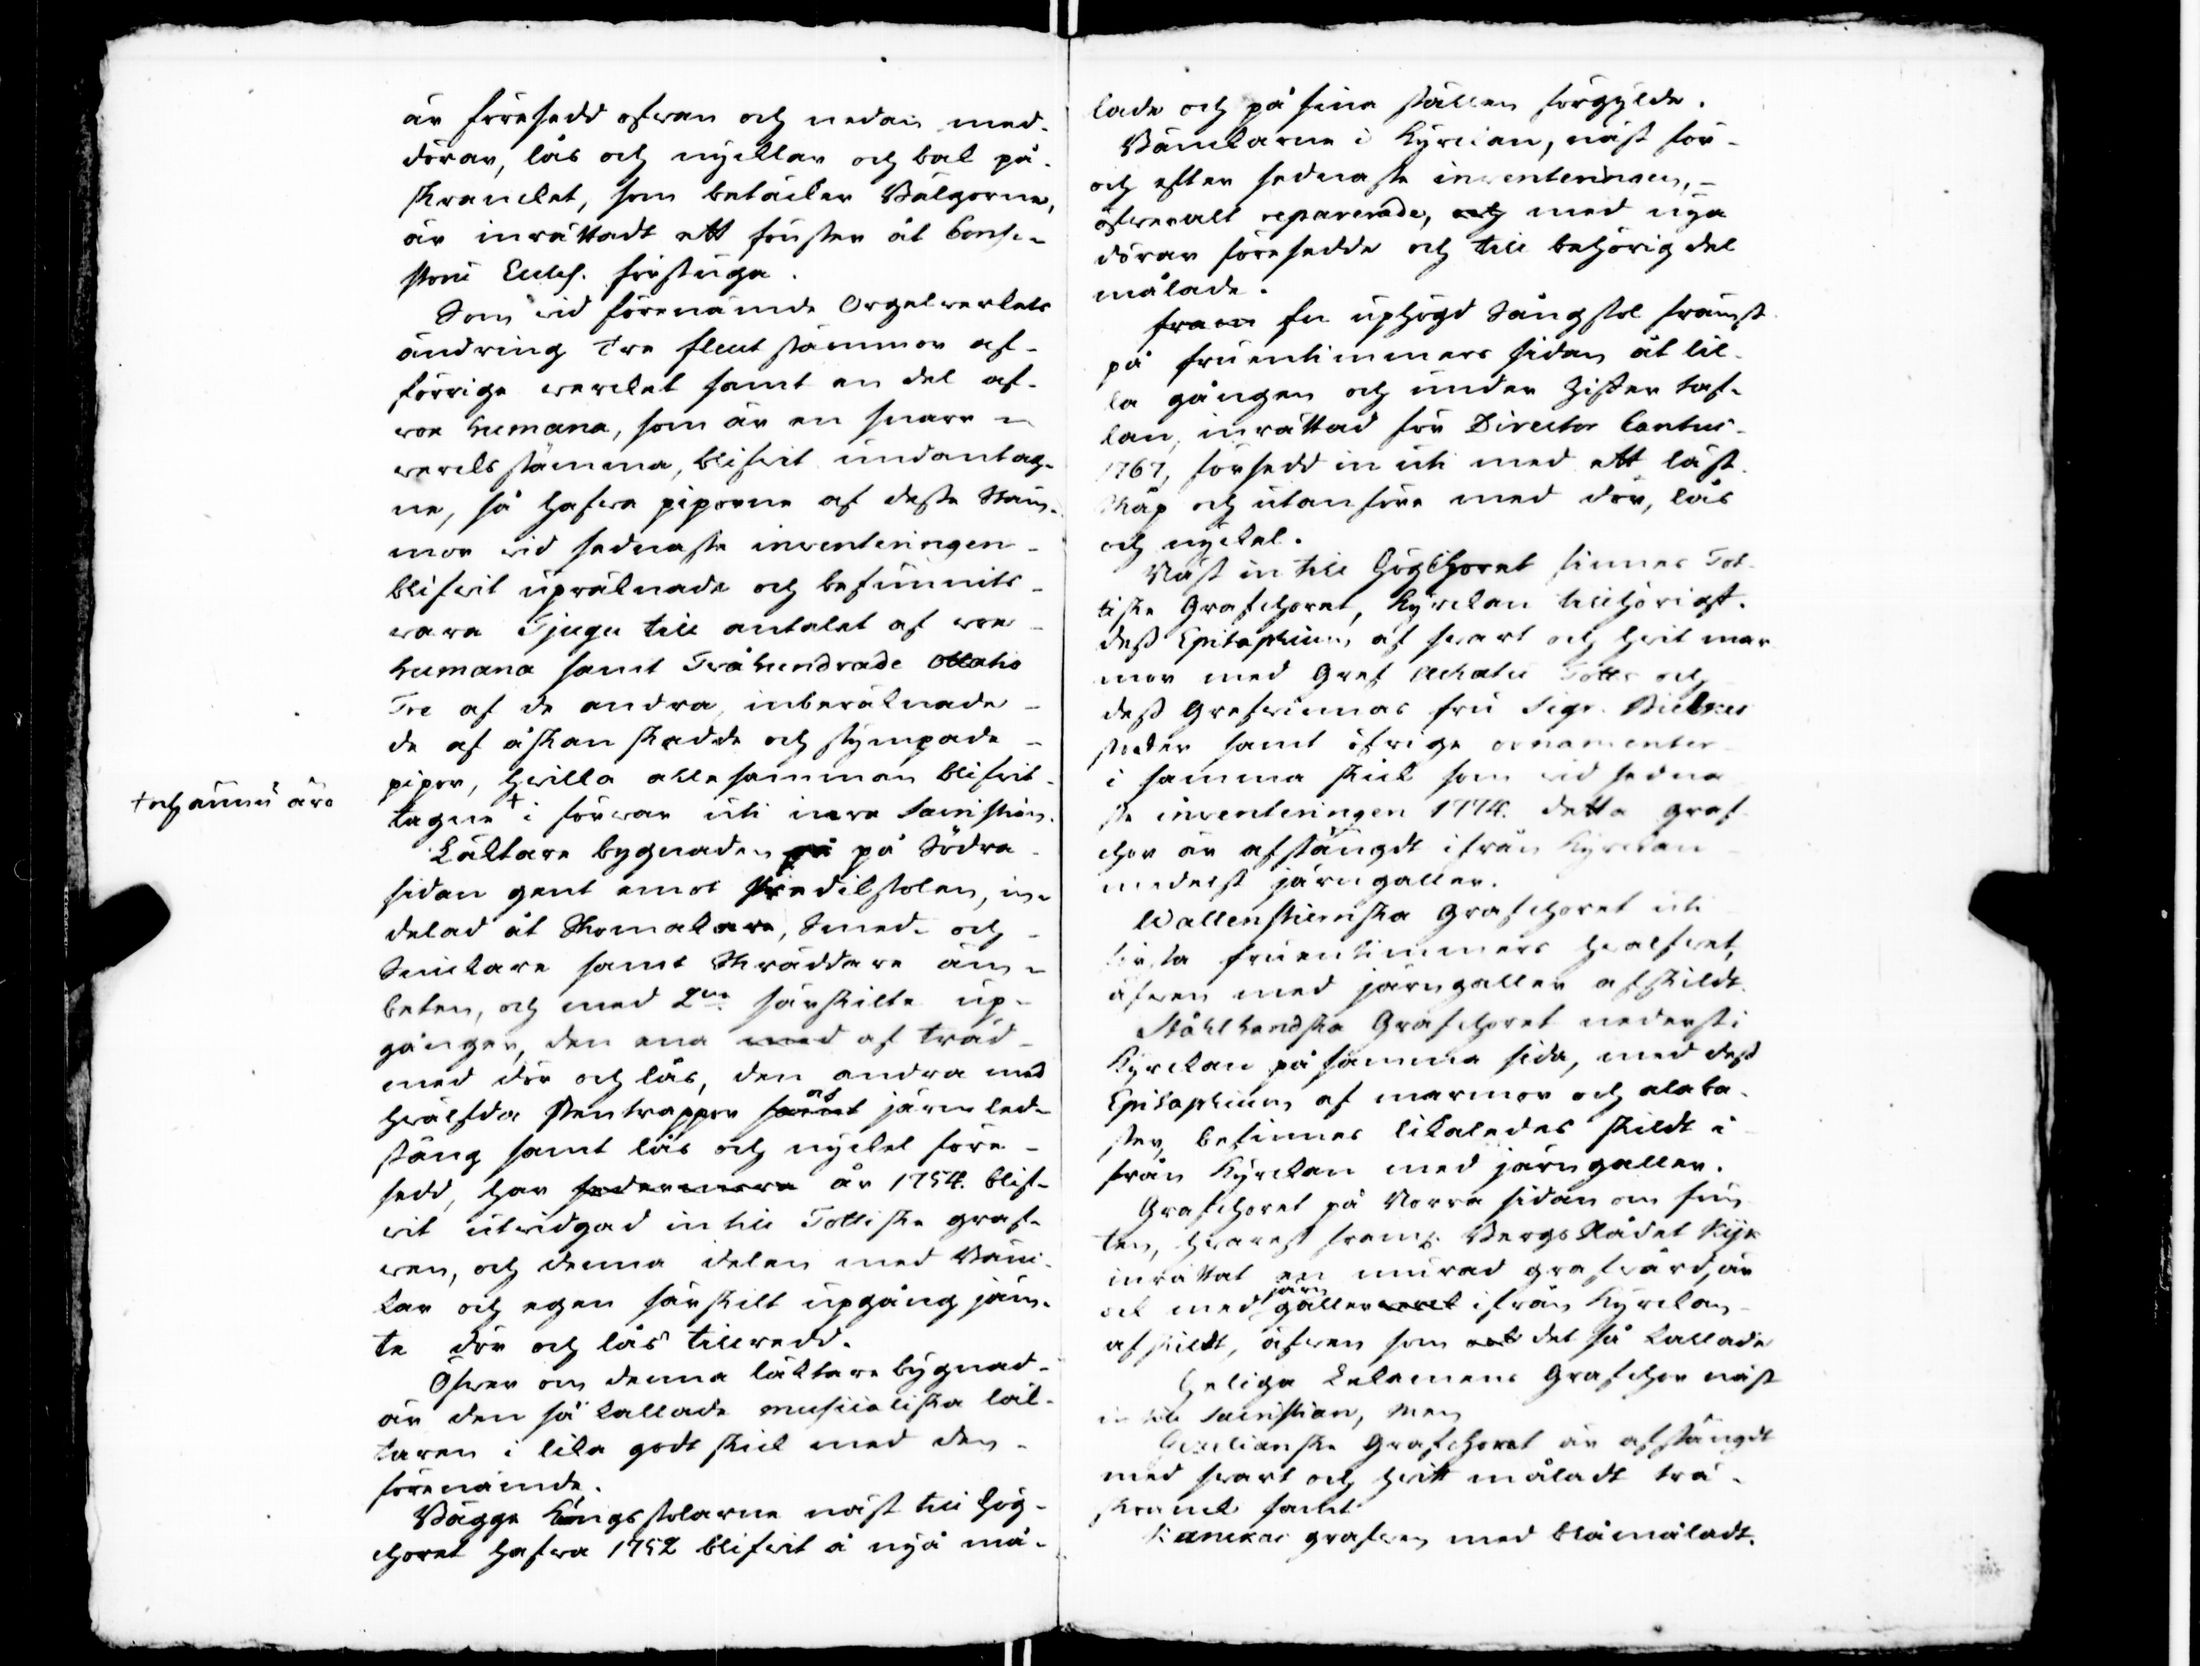 är försedd ofwan och nedan med
dörar, lås och nycklar och bak på
skrancket, som betäcker Bälgorne,
är inrättadt ett fönster åt Consi-
storii Eccles. förstuga.
Som wid förenämde Orgelwerkets
ändring tre fleut stämmor af
förrige werket samt en del af
vox humana, som är en snarr-
wercks stämma, blifwit undantag-
ne, så hafwa piporne af desse Stäm-
mor wid sednaste inventeringen
blifwit upräknade och befunnits
wara Tjugu till antalet af vox
humana samt Tvåhundrade Ottatio
Tre af de andra, inberäknade
de af åskan skadde och stympade
pipor, hwilka allesamman blifwit
† och ännu äro
tagne † i förwar uti inre Sacristian.
Läktare bygnaden på på Södra
sidan gent emot Predikstolen, in-
delad åt Skomakare, Smed- och
Snickare samt Skräddare äm-
beten, och med 2ne särskilte up-
gångar, den ena med af träd
med dör och lås, den andra med
hwälfda stentrappor samt af järn led-
stång samt lås och nyckel före-
sedd, har sedermera år 1754. blif-
wit utwidgad in till Tottiske graf-
wen, och denna delen med Bänc-
kar och egen särskilt upgång jäm-
te dör och lås tillredd.
Öfwer om denna läktare bygnad
är den så kallade musicaliska läk-
taren i lika godt skick med den
förenämde.
Bägge Kungsstolarne näst till Hög-
choret hafwa 1752 blifwit å nyå må-
lade och på sina ställen förgylde.
Bänckarne i Kyrckan, näst för
och efter sednaste inventeringen,
öfweralt reparerade, och med nya
dörar föresedde och till behörig del
målade.
fram En uphögd Sångstol främst
på fruentimmers sidan åt lil-
la gången och under Ziffer taf-
lan, inrättad för Director Cantus
1767, försedd in uti med ett låst
Skåp och utanföre med dör, lås
och nyckel.
Näst in till HögChoret finnes Tot-
tiske Grafchoret, Kyrckan tillhörigt.
dess Epitaphium af swart och hwit mar
mor med Gref Achatii Totts och
dess Grefwinnas fru Sigr. Bielkes
stoder samt öfrige ornamenter
i samma skick som wid sedna
ste inventeringen 1774. detta graf
chor är afstängdt ifrån Kyrckan
medelst järngaller.
Wallenstiernska Grafchoret uti
första fruentimmers hwalfwet,
äfwen med järngaller afskildt.
Stålhandska Grafchoret nederst i
Kyrckan på samma sida, med dess
Epitaphium af marmor och alaba-
ster, befinnes likaledes skildt i
från Kyrckan med järngaller.
Grafchoret på Norra sidan om fun
ten, hwarest framl. Bergs Rådet Kijk
inrättat en murad grafwård, är
ock med järn galler werck ifrån Kyrckan
afskildt, äfwen som ock det så kallade
Heliga Lekamens Grafchor näst
in till Sacristian, Men
Grafchoret är afstängdt
med swart och hwitt måladt trä-
skranck samt
grafwen med blåmåladt.